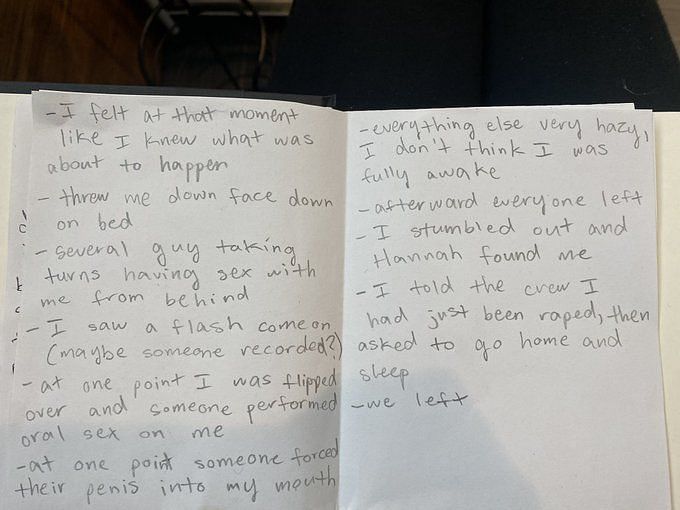 - I felt at that moment
like I knew what was
about to happen
- threw me down face down
on bed
- several guy taking
turns having sex with
me from behind
- I saw a flash come on
(maybe someone recorded?)
- at one point I was flipped
over and someone performed
oral sex on me
- at one point someone forced
their penis into my mouth
- everything else very hazy,
I don't think I was
fully awake
- afterward everyone left
- I stumbled out and
Hannah found me
- I told the crew I
had just been raped, then
asked to go home and
sleep
- we left